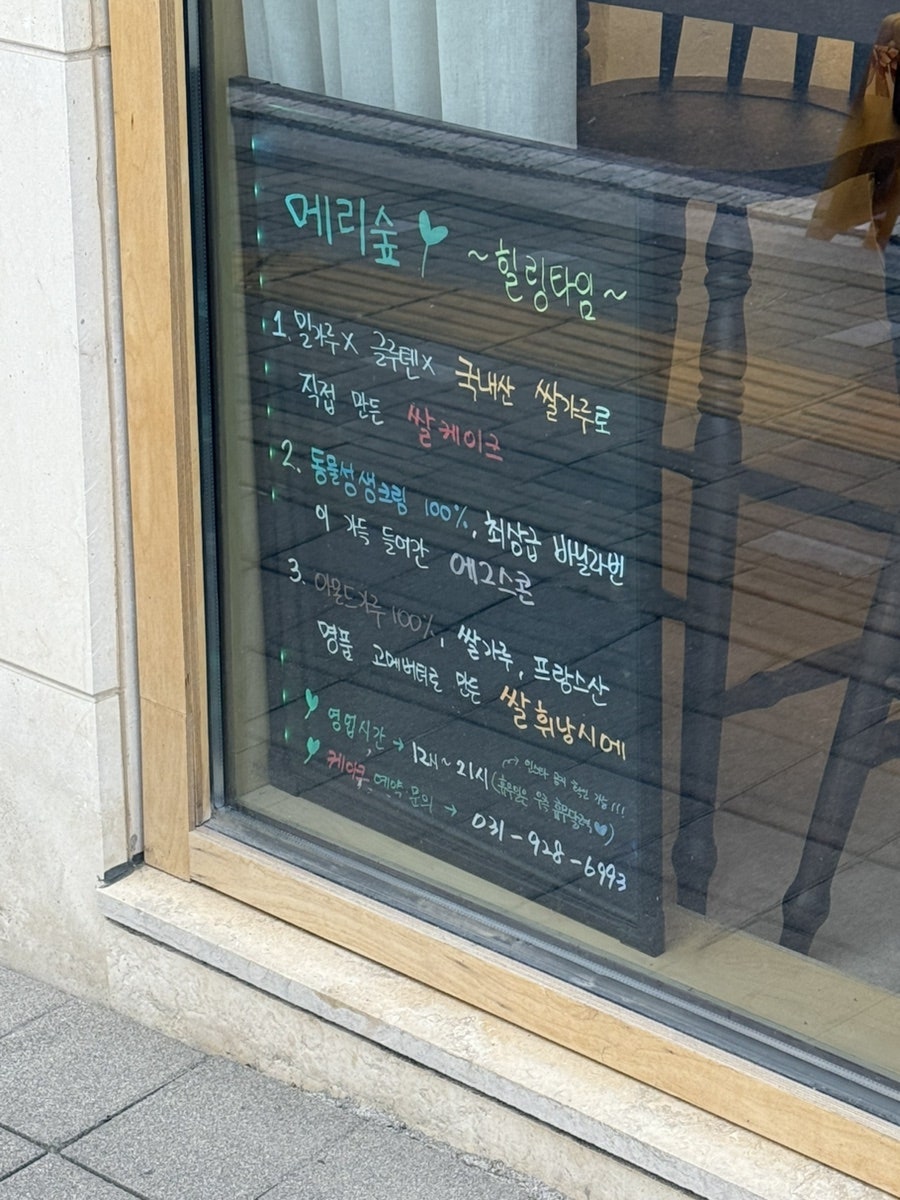 메리숲
~힐링타임~
1. 밀가루X 글루텐X 국내산 쌀가루로
직접 만든 쌀케이크
2. 동물성생크림 100%, 최상급 바닐라빈
이 가득 들어간 에그스콘
3. 아몬드가루 100%, 쌀가루, 프랑스산
명품 고메버터로 만든 쌀휘낭시에
영업시간 → 12시~21시 (휴무일은 우측 휴무달력
→ 인스타 공지 확인 가능!!!
케이크 예약 문의 → 031-928-6993